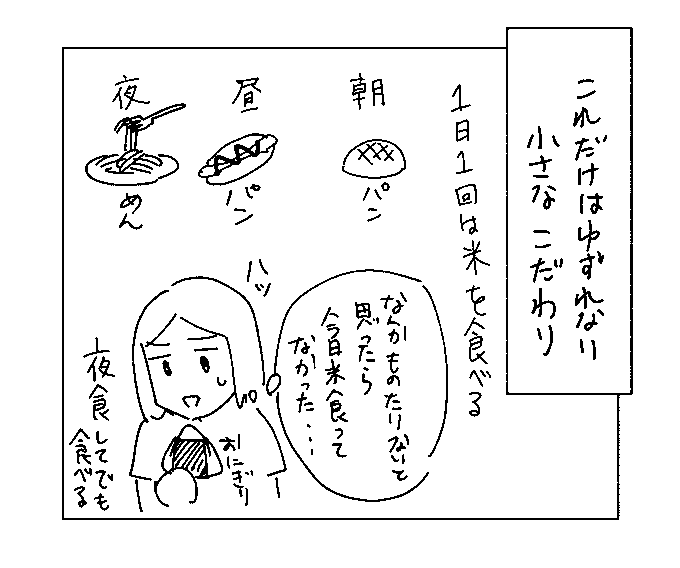 これだけはゆずれない
小さなこだわり
1日1回は米を食べる
朝
パン
昼
パン
夜
めん
なんかものたりないと
思ったら
今日米食って
なかった・・・
ハッ
おにぎり
夜食してでも
食べる